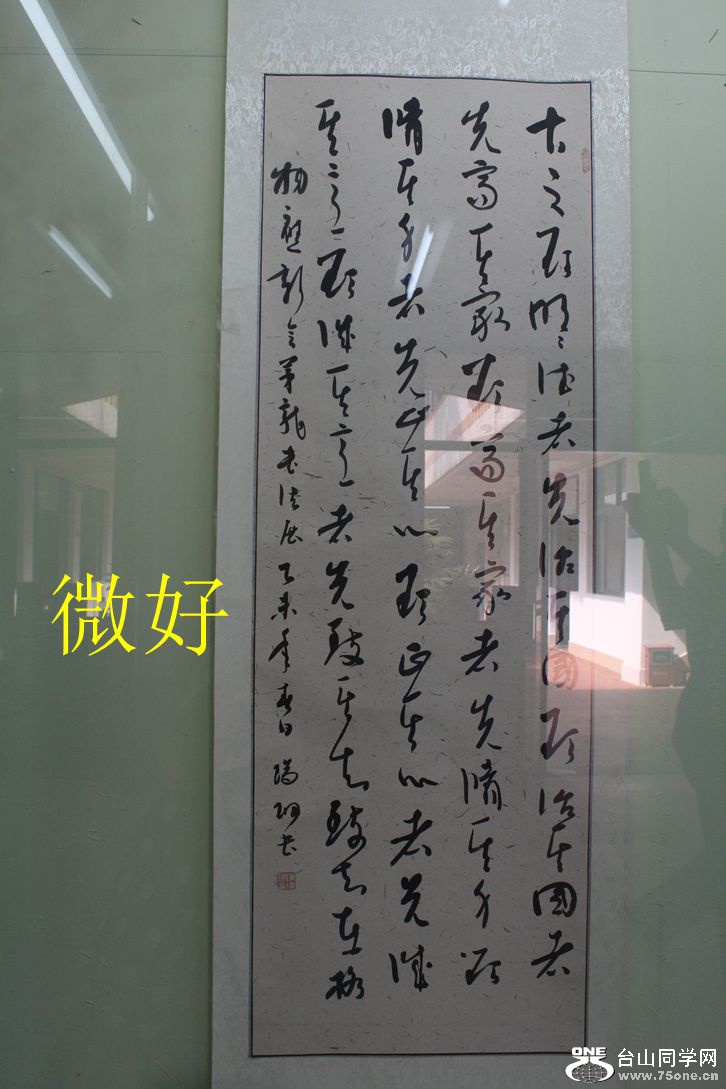 古之欲明々德者先治其國欲治其國者
先齊其家欲齊其家者先脩其身欲
脩其身者先正其心欲正其心者先誠
其意欲誠其意者先致其知致知在格
物 茅龍書法展 乙未年春日 瑞 書
微好
ONE 台山同学网
www.75one.cn